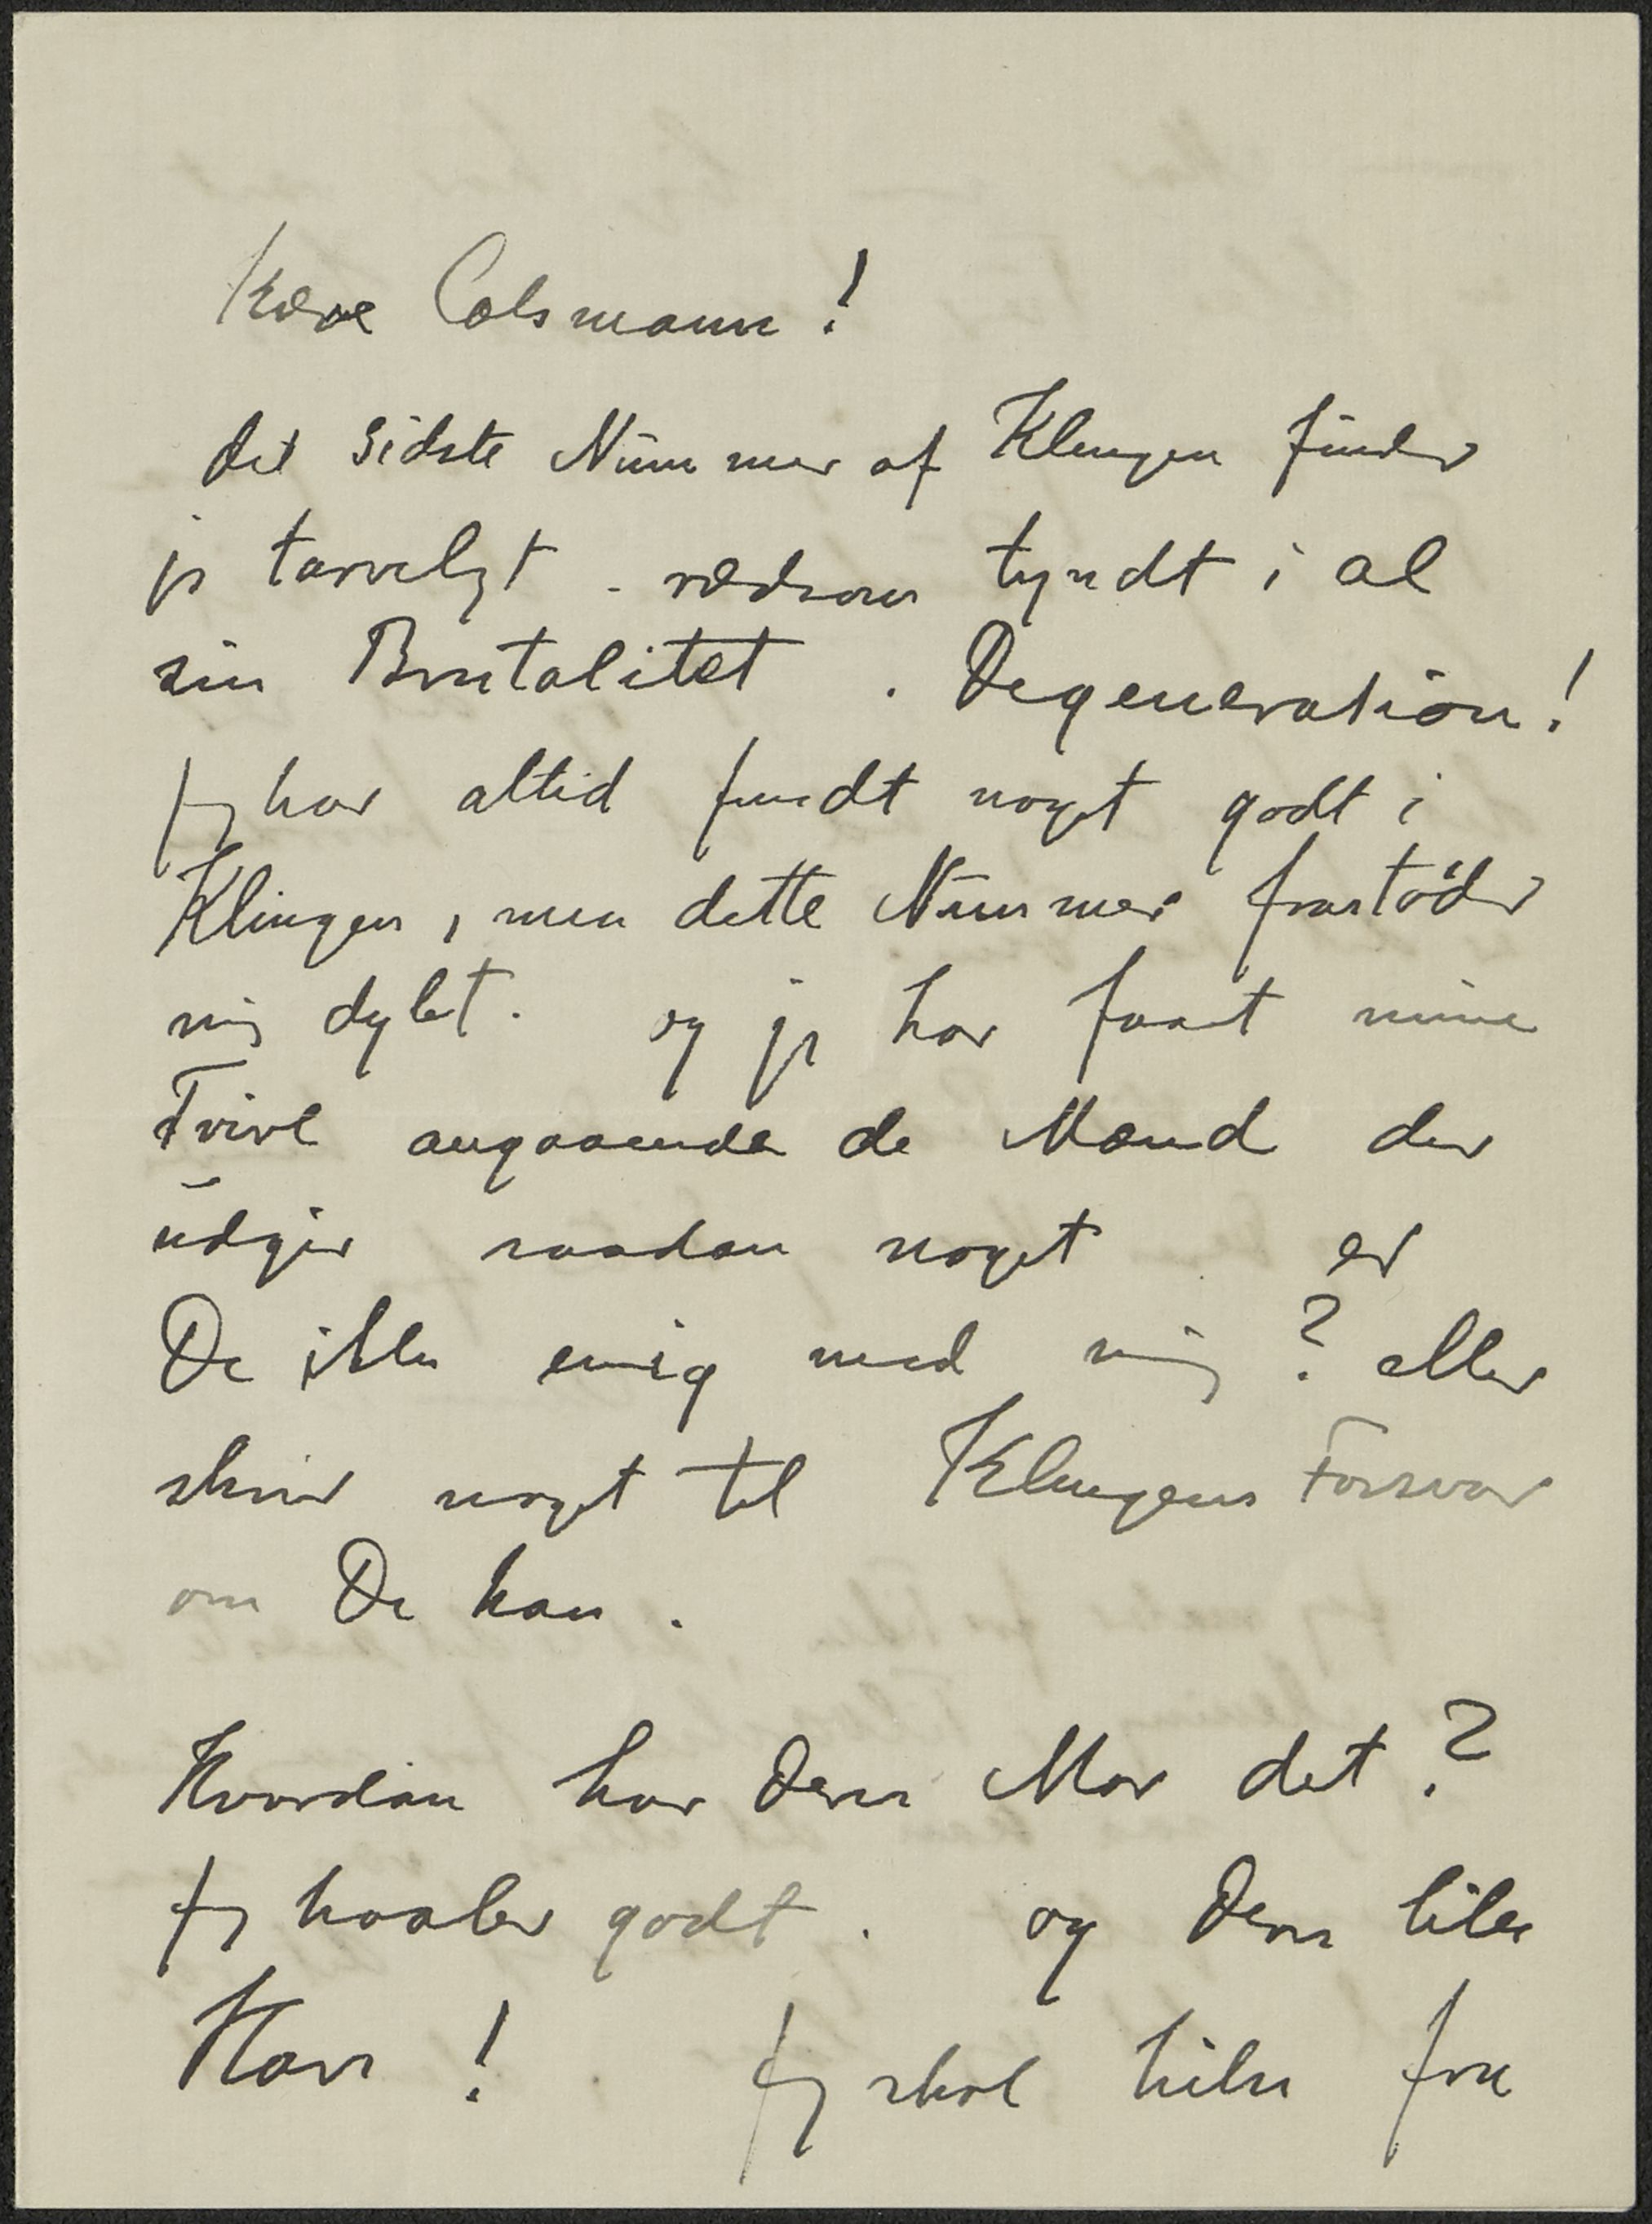 Kære Colsmann!
det sidste Nummer af Klingen finder
jeg tarveligt - rædsom tyndt i al
sin Brutalitet. Degeneration!
Jeg har altid fundt noget godt i
Klingen, men dette Nummer frastöder
mig dybt. og jeg har faaet mine
Tvivl angaaende de Mænd der
udgir saadan noget er
De ikke enig med mig? eller
skriv noget til Klingens Forsvar
om De kan.
Hvordan har Deres Mor det?
Jeg haaber godt. og Deres lille
Have! Jeg skal hilse fra